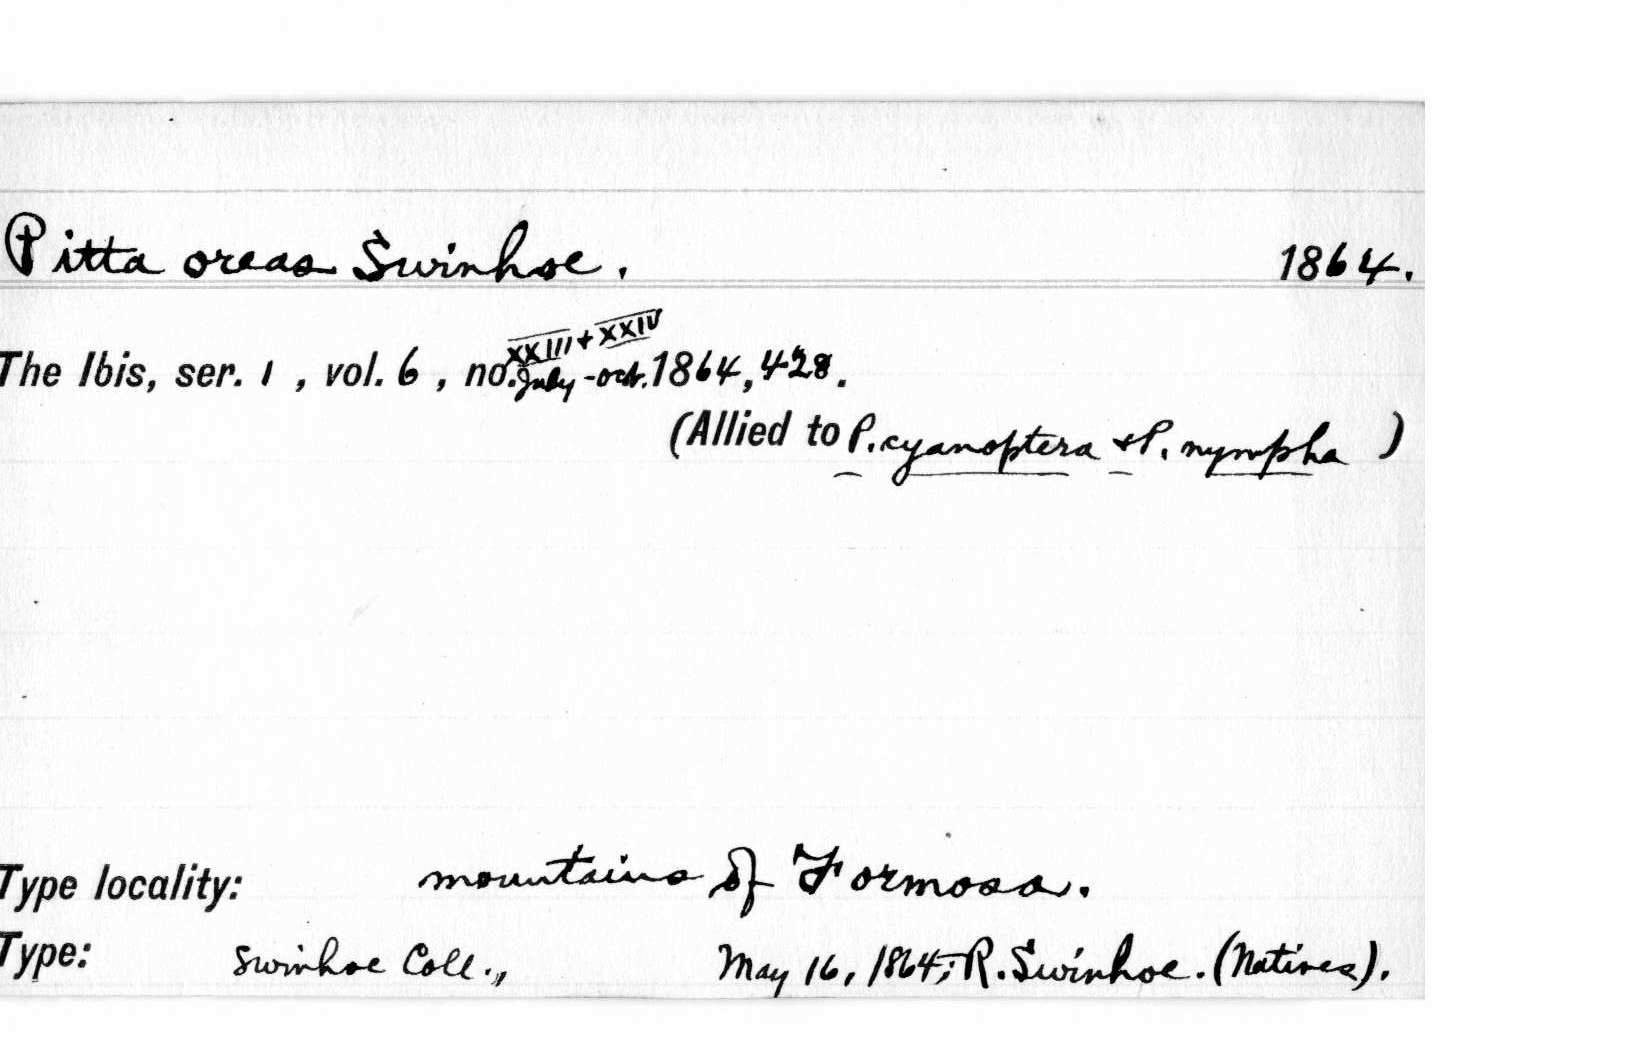 Pitta oreas Swinhoe. 1864.
XXIII + XXIV
The Ibis, ser. 1, vol. 6, no. July-Oct. 1864, 428.
(Allied to P. cyanoptera & P. nympha)
Type locality: mountains of Formosa.
Type: Swinhoe Coll., May 16, 1864; R. Swinhoe. (Natives).